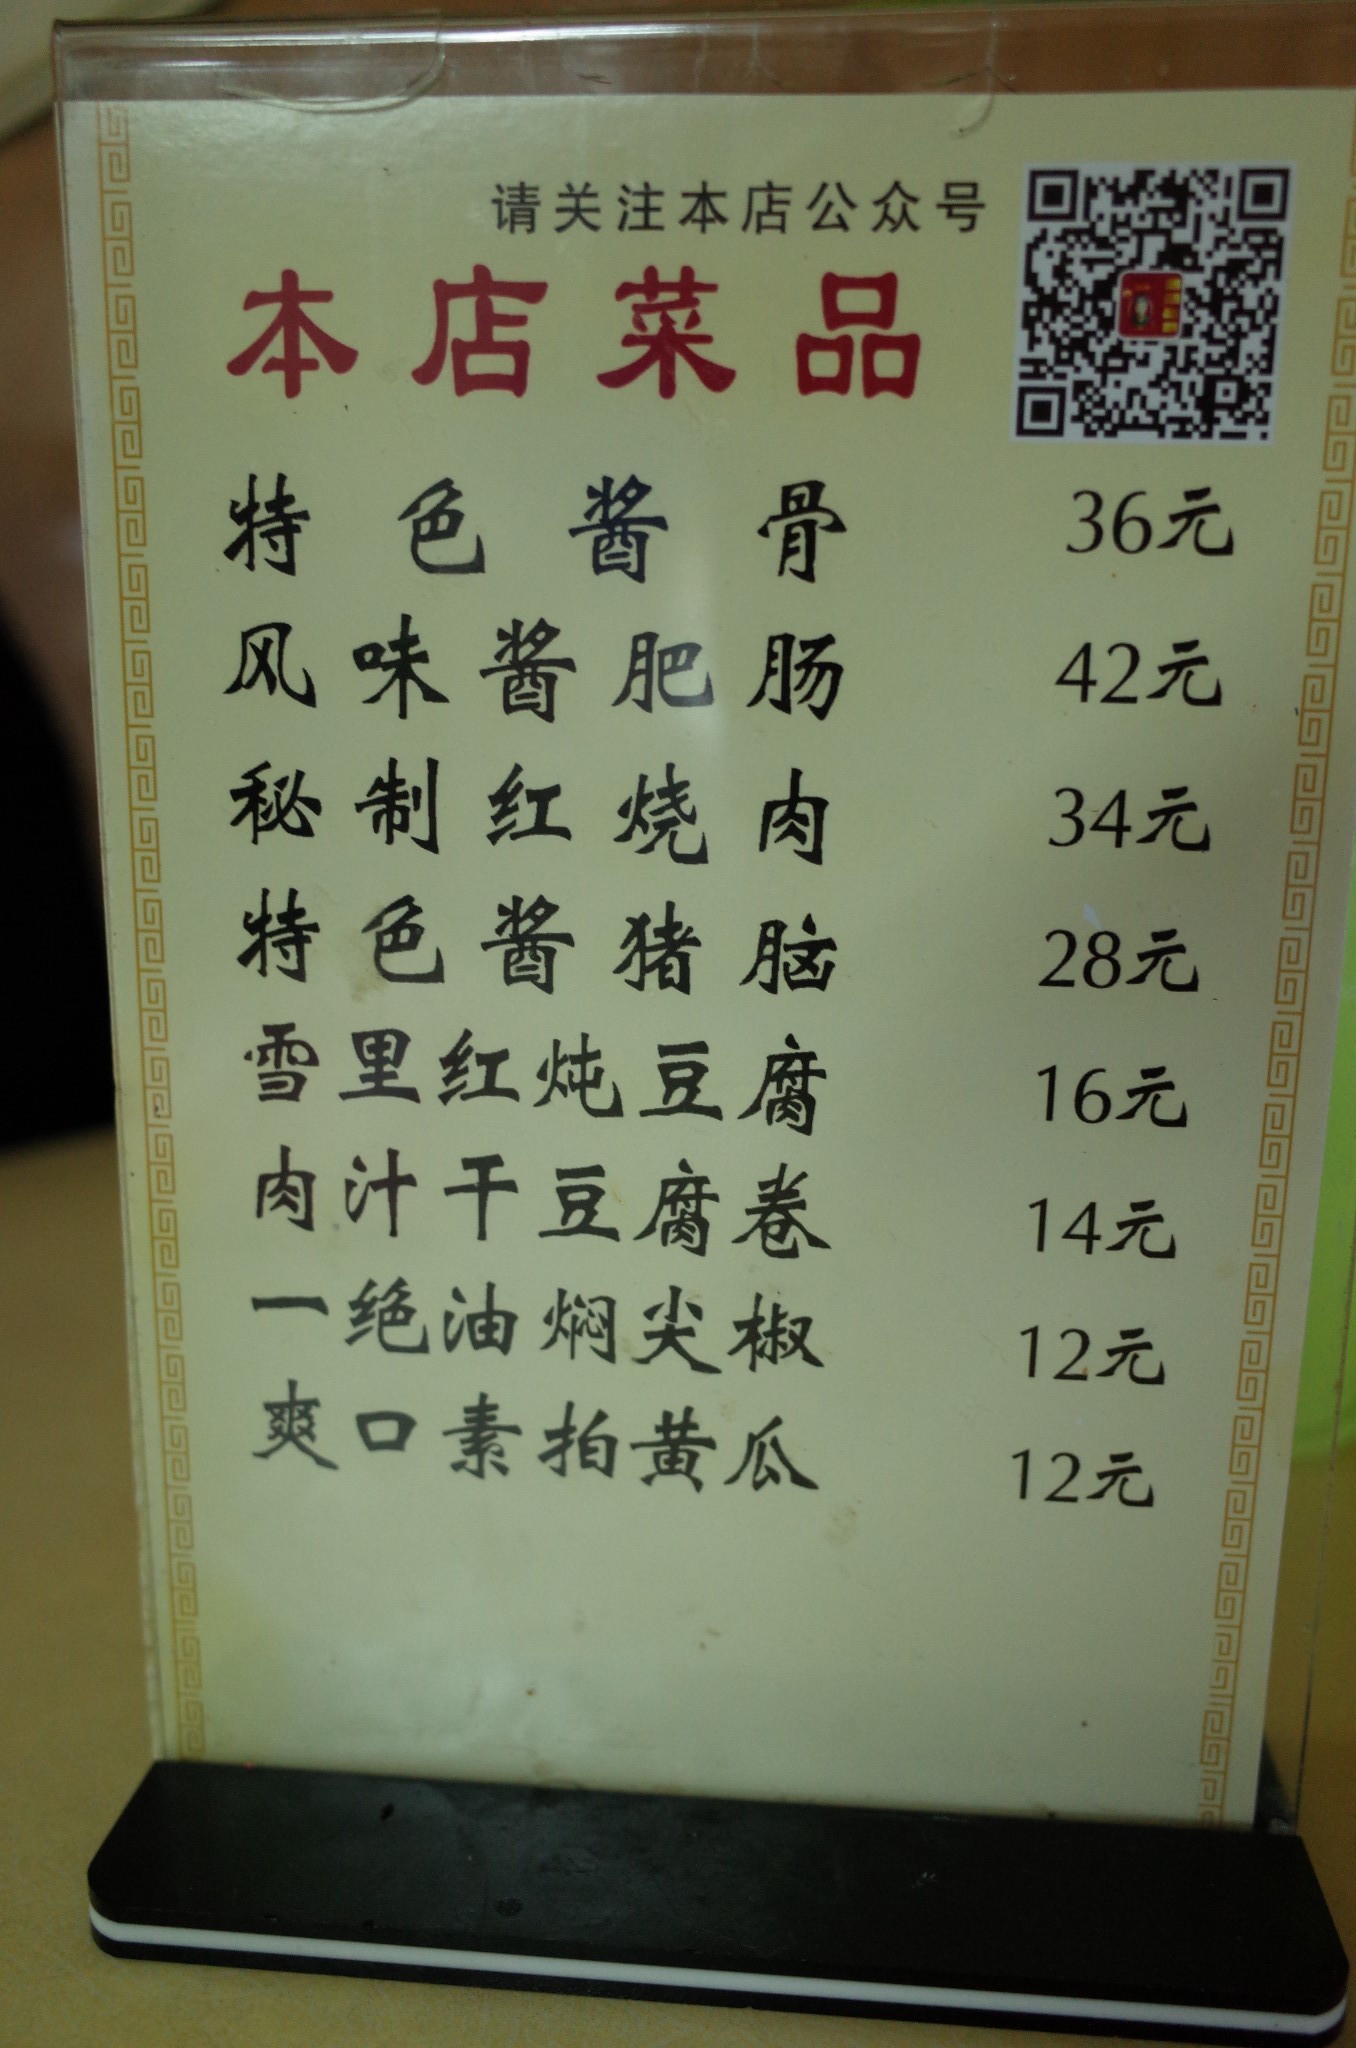 请关注本店公众号
本店菜品
特色酱骨 36元
风味酱肥肠 42元
秘制红烧肉 34元
特色酱猪脑 28元
雪里红炖豆腐 16元
肉汁干豆腐卷 14元
一绝油焖尖椒 12元
爽口素拍黄瓜 12元